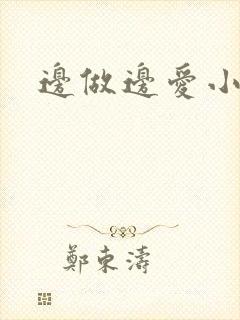 邊做邊愛小
鄭東濤